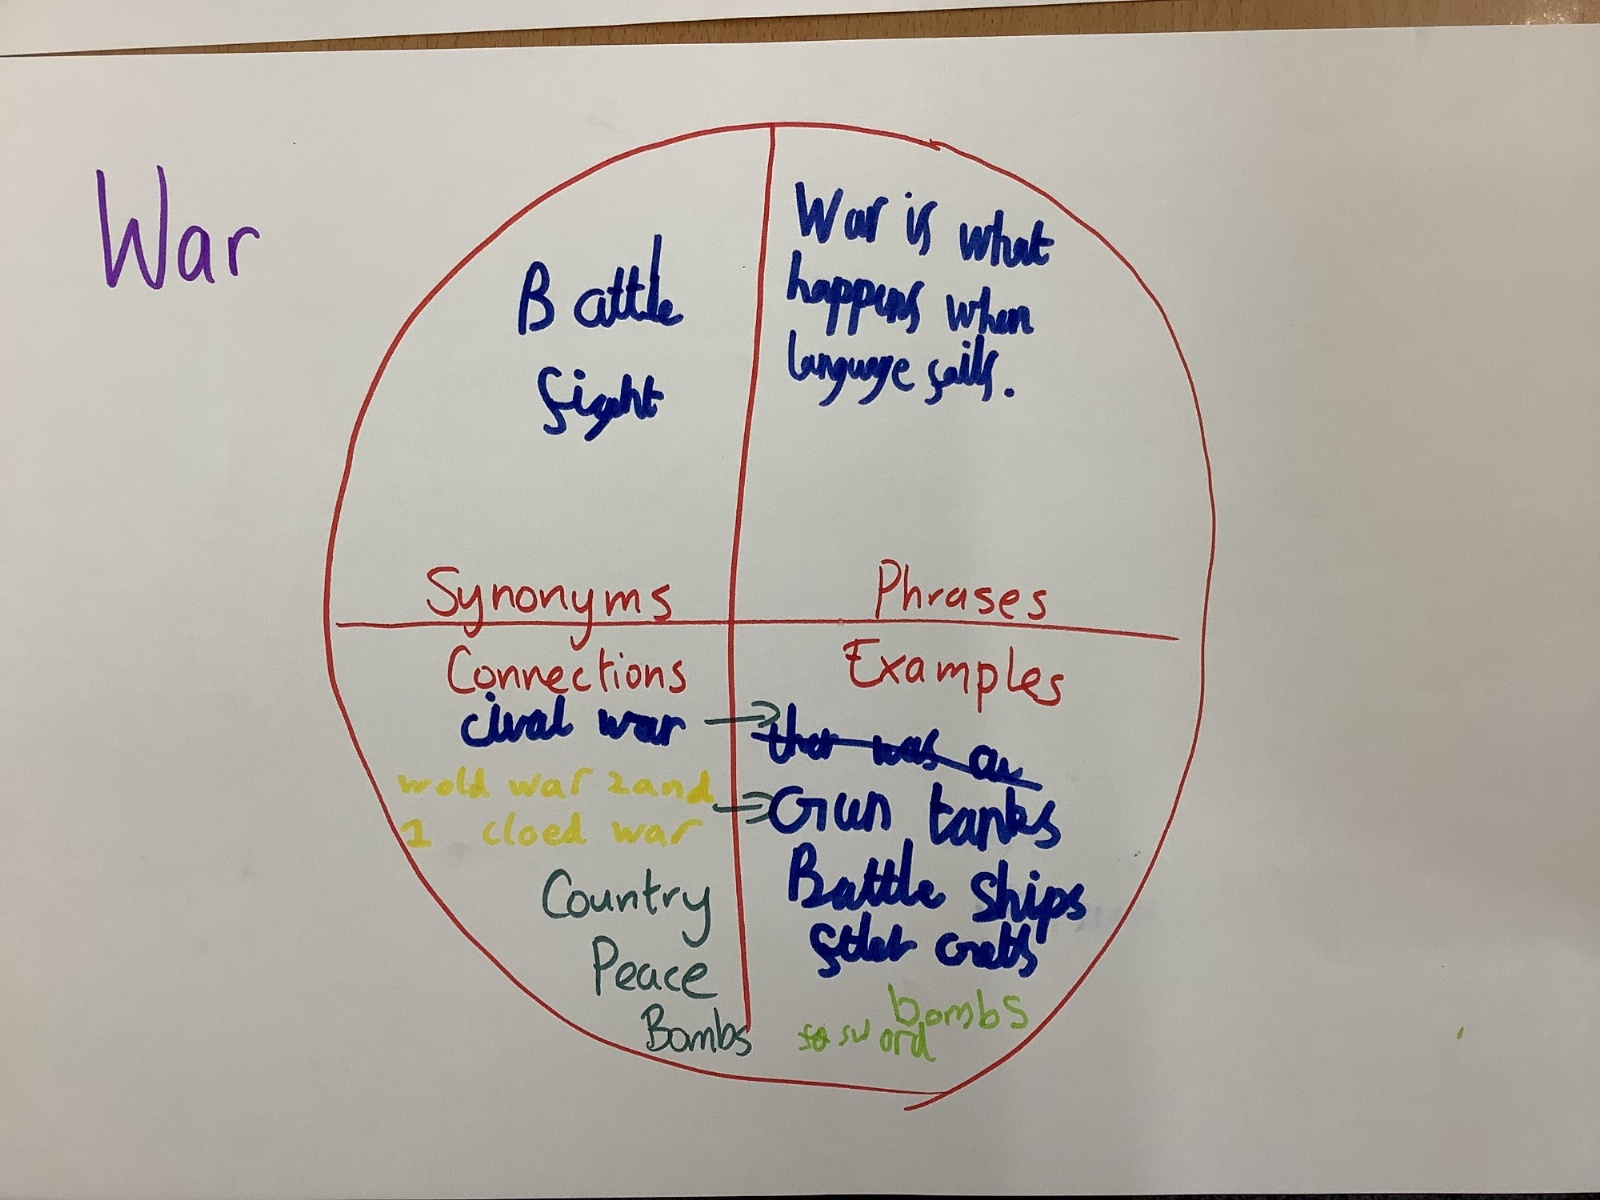 War
Battle
fight
Synonyms
War is what
happens when
language fails.
Phrases
Connections
cival war
wold war 2 and
1 cloed war
Country
Peace
Bombs
Examples
ther was a
Gun tanks
Battle ships
bombs
sword